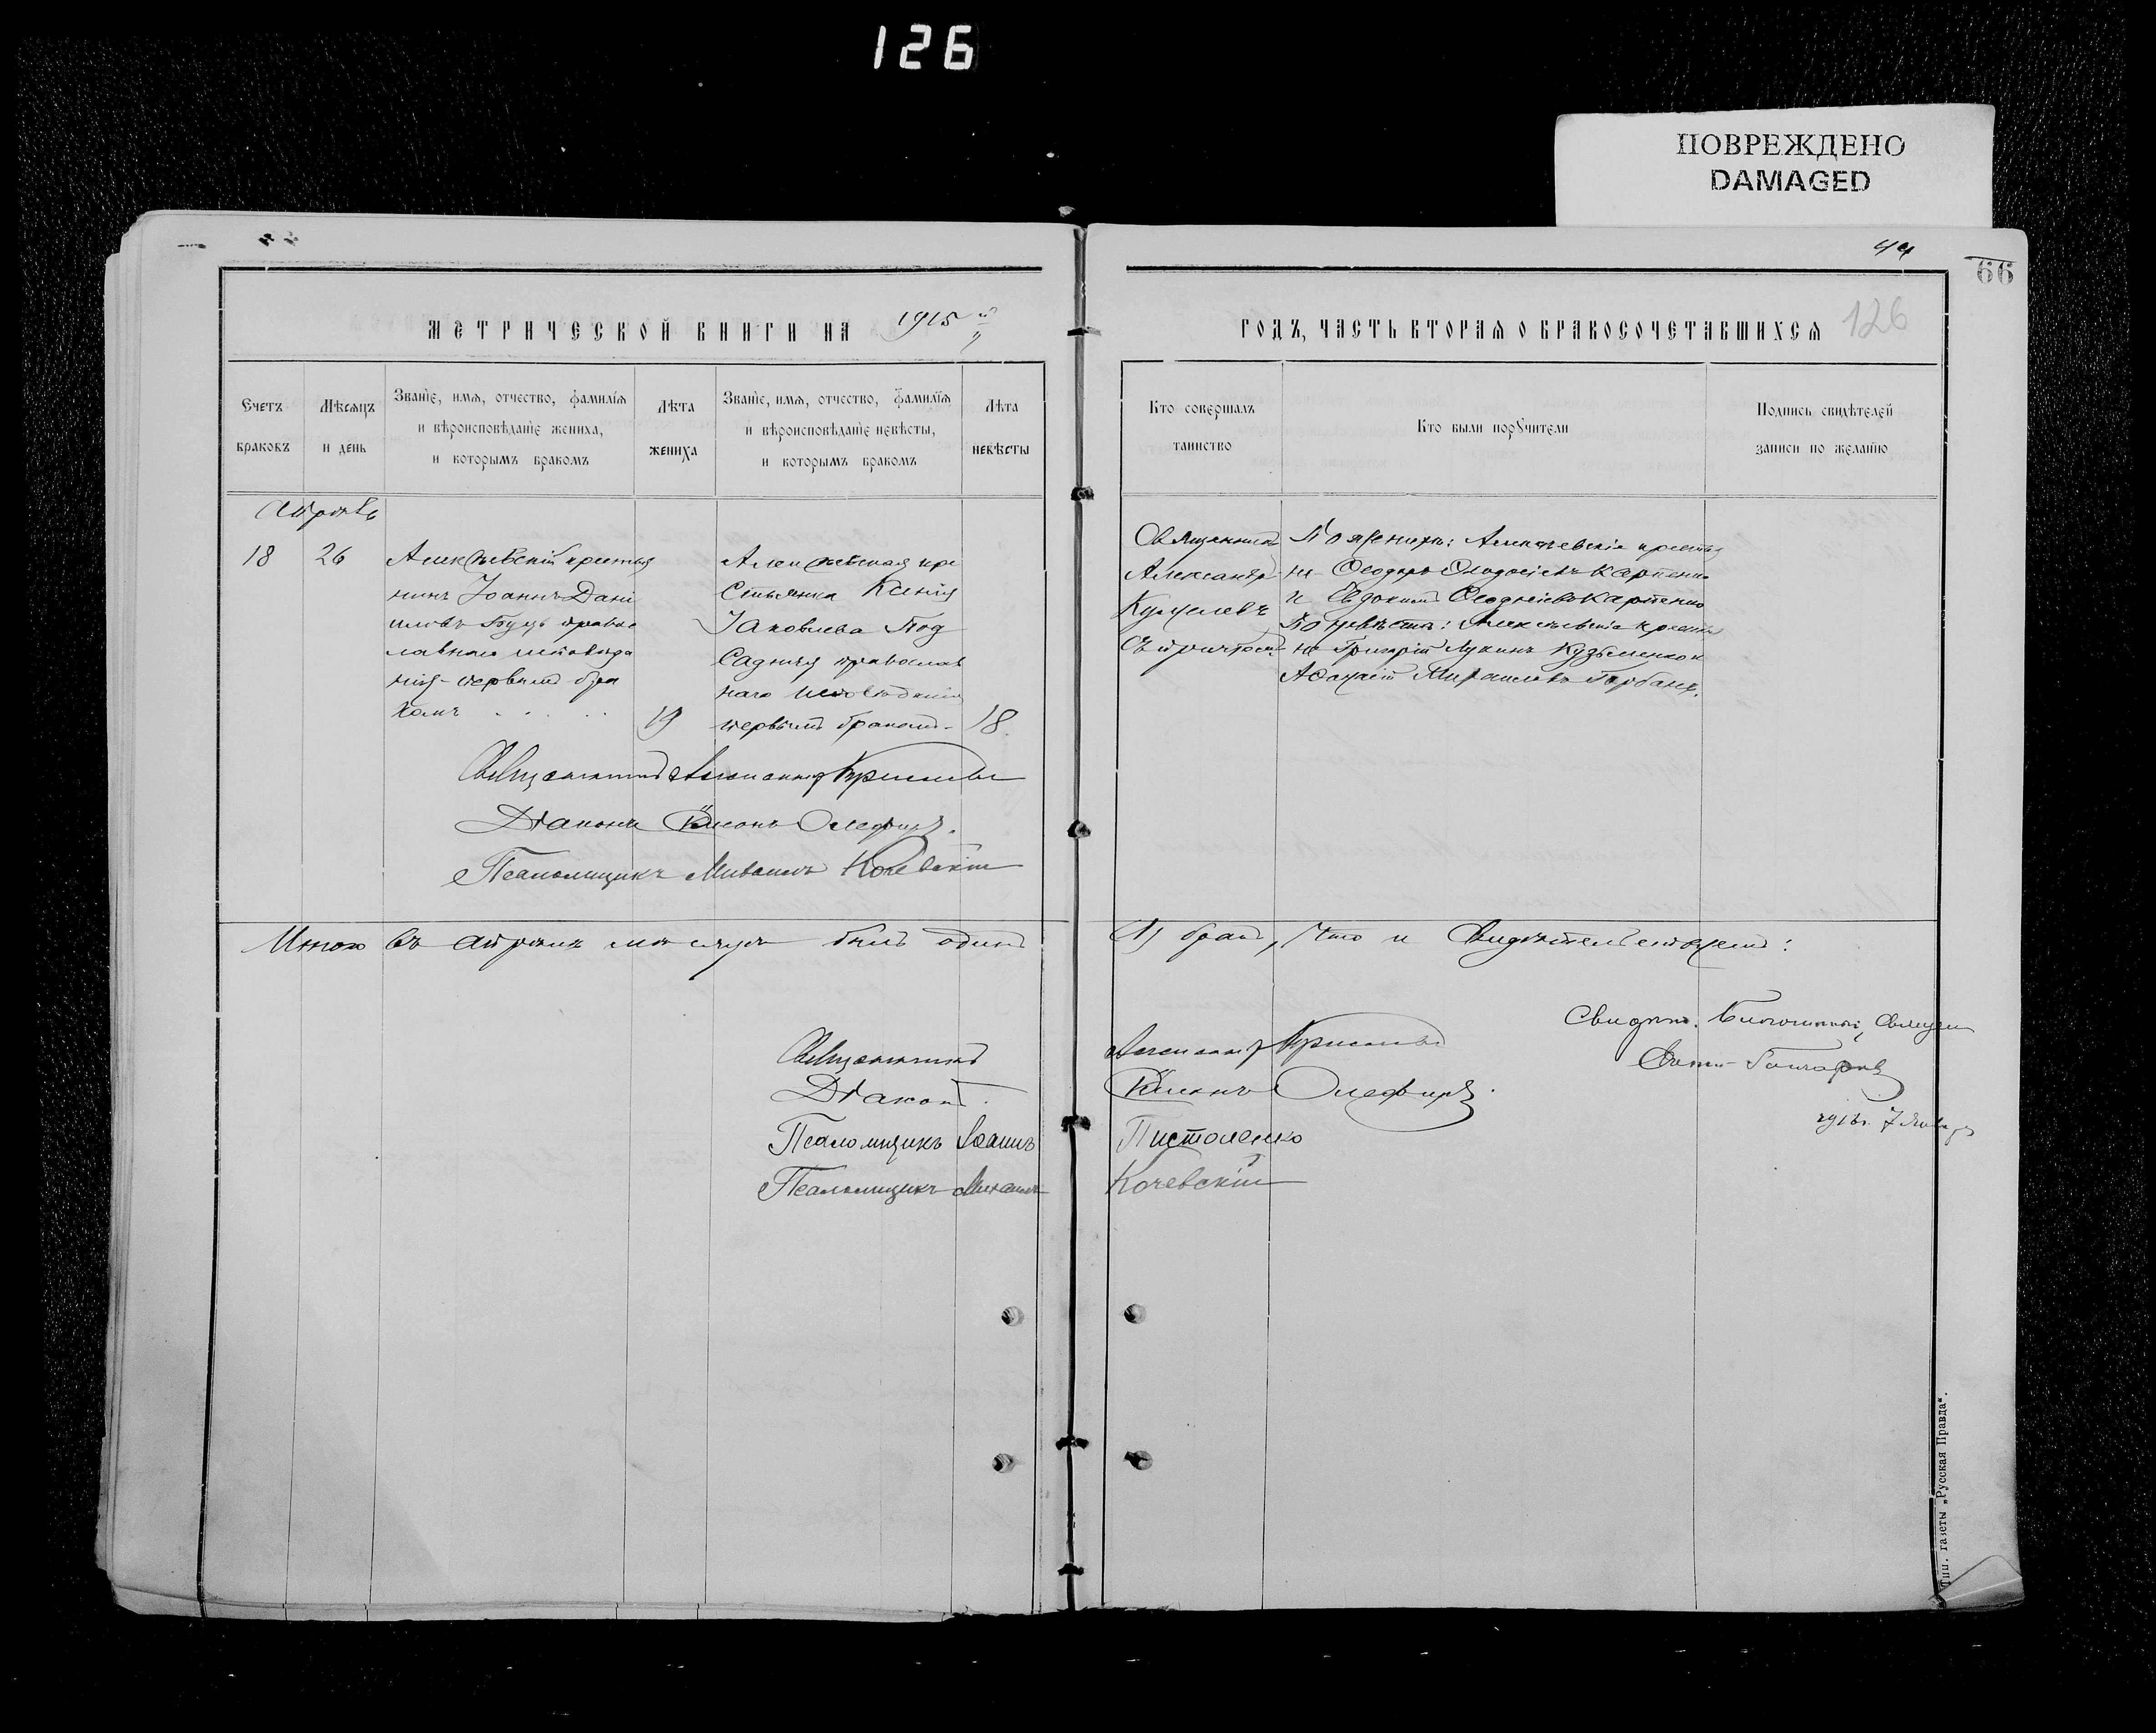 126
ПОВРЕЖДЕНО
DAMAGED
44
66
126
МЕТРИЧЕСКОЙ КНИГИ НА 1915 й
ГОДЪ, ЧАСТЬ ВТОРАЯ О БРАКОСОЧЕТАВШИХСЯ
Счетъ
браковъ
Мѣсяцъ
и день
Званіе, имя, отчество, фамилія
и вѣроисповѣданіе жениха,
и которымъ бракомъ
Лѣта
жениха
Званіе, имя, отчество, фамилія
и вѣроисповѣданіе невѣсты,
и которымъ бракомъ
Лѣта
невѣсты
Кто совершалъ
таинство
Кто были поручители
Подпись свидѣтелей
записи по желанію
Апрѣль
18
26
Алексѣевскій крестья
нинъ Іоаннъ Дани
иловъ правос
лавнаго исповѣда
нія первымъ бра
комъ
19
Алексѣевская кре
стьянка Ксенія
Іаковлева Под
садняя православ
наго исповѣданія
первымъ бракомъ
18.
Священникъ
Александръ
съ причтомъ
По женихѣ: Алексѣевскіе крестья
не Ѳеодоръ Ѳеодосіевъ Карпенко
и Евдокимъ Ѳеодосіевъ Карпенко
По невѣстѣ: Алексѣевскіе крестья
не Григорій Лукинъ Кузьменко и
Михаиловъ Горбань.
Священникъ Александр
Діаконъ Олефиръ.
Псаломщикъ Михаилъ Кочевскій
Итого въ апрѣлѣ мѣсяцѣ былъ одинъ
(1) бракъ, что и свидѣтельствуемъ:
Священникъ
Александр
Діаконъ
Олефиръ.
Псаломщикъ Іоаннъ
Пистоленко
Псаломщикъ Михаилъ
Кочевскій
Свидѣт. Благочинный, Священ
Гончаровъ
1916 г. 7 Января
Тип. газеты „Русская Правда“.